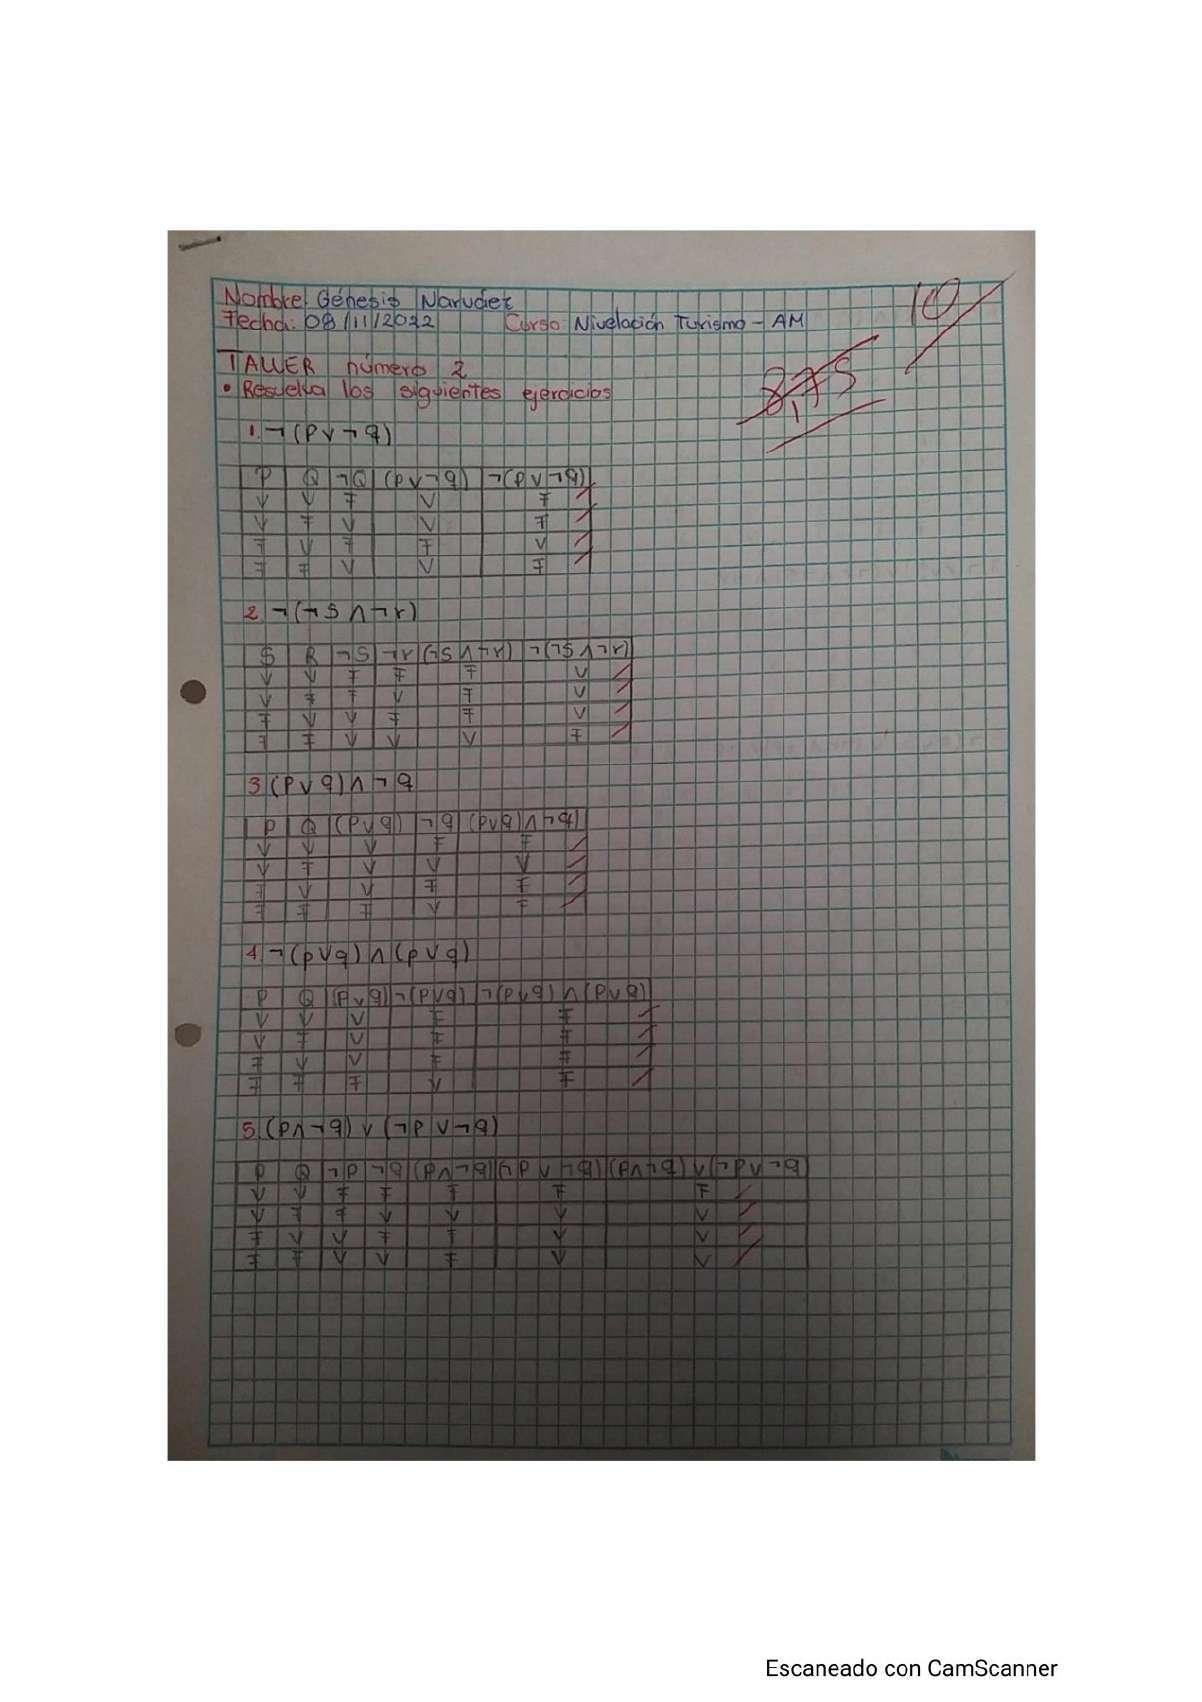 Nombre: Génesis Narváez
Fecha: 08/11/2022 Curso Nivelación Turismo - AM
10
TALLER número 2
8,75
• Resuelva los siguientes ejercicios
1. ¬(p∨¬q)
P Q ¬Q (p∨¬q) ¬(p∨¬q)
V V F V F
V F V V F
F V F F V
F F V V F
2 ¬(¬s∧¬r)
S R ¬S ¬r (¬s∧¬r) ¬(¬s∧¬r)
V V F F F V
V F F V F V
F V V F F V
F F V V V F
3 (p∨q)∧¬q
P Q (p∨q) ¬q (p∨q)∧¬q)
V V V F F
V F V V V
F V V F F
F F F V F
4 ¬(p∨q)∧(p∨q)
P Q (p∨q) ¬(p∨q) ¬(p∨q)∧(p∨q)
V V V F F
V F V F F
F V V F F
F F F V F
5 (p∧¬q)∨(¬p∨¬q)
P Q ¬P ¬q (p∧¬q) (¬p∨¬q) (p∧¬q)∨(¬p∨¬q
V V F F F F F
V F F V V V V
F V V F F V V
F F V V F V V
Escaneado con CamScanner